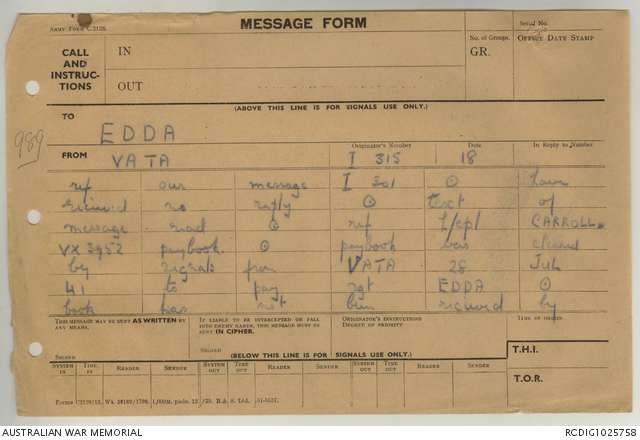 ARMY FORM C.2128.
MESSAGE FORM
Serial No.
CALL AND INSTRUCTIONS
IN
OUT
No. of Groups.
GR.
OFFICE DATE STAMP
(ABOVE THIS LINE IS FOR SIGNALS USE ONLY.)
989
TO
EDDA
FROM
VATA
Originator's Number
I 315
Date
18
In Reply to Number
ref our message I 301 ⊙ have
received no reply ⊙ text of
message read ⊙ ref L/cpl CARROLL
VX 3952 paybook ⊙ paybook was cleared
by signals from VATA 28 JUL
41 to pay sgt EDDA ⊙
book has not been received by
THIS MESSAGE MAY BE SENT AS WRITTEN BY ANY MEANS.
IF LIABLE TO BE INTERCEPTED OR FALL INTO ENEMY HANDS, THIS MESSAGE MUST BE SENT IN CIPHER.
ORIGINATOR'S INSTRUCTIONS
DEGREE OF PRIORITY
TIME OF ORIGIN.
SIGNED
SIGNED
(BELOW THIS LINE IS FOR SIGNALS USE ONLY.)
T.H.I.
T.O.R.
SYSTEM IN TIME IN READER SENDER SYSTEM OUT TIME OUT READER SENDER SYSTEM OUT TIME OUT READER SENDER
AUSTRALIAN WAR MEMORIAL
RCDIG1025758